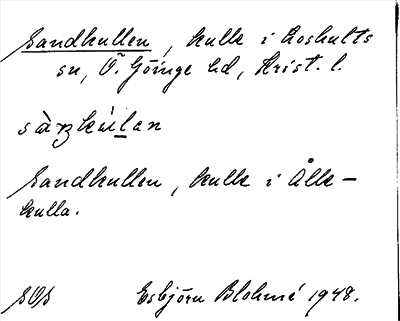 Sandkullen, kulle i Loshults
sn, Ö. Göinge hd, Krist. l.
Sandkullen, kulle i Ålle-
kulla.
Esbjörn Blohmé 1948.